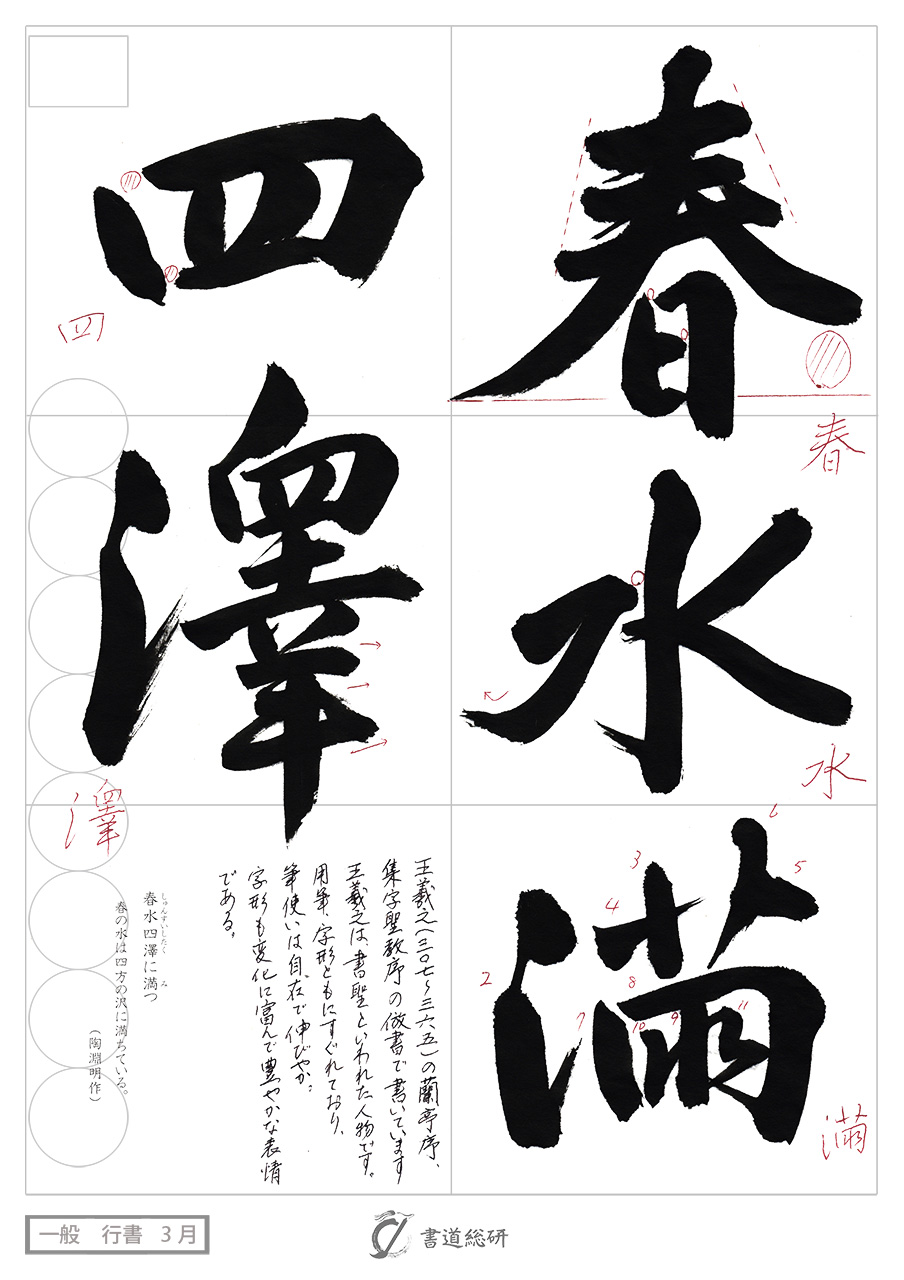 春
水
満
四
澤
春
水
満
四
澤
2
3
4
5
6
7
8
9
10
11
王羲之(三〇七〜三六五)の蘭亭序、
集字聖教序の倣書で書いています
王羲之は、書聖といわれた人物です。
用筆、字形ともにすぐれており、
筆使いは自在で伸びやか、
字形も変化に富んで豊やかな表情
である。
しゅんすいしたく み
春水四澤に満つ
春の水は四方の沢に満ちている。
(陶淵明作)
一般 行書 3月
書道総研